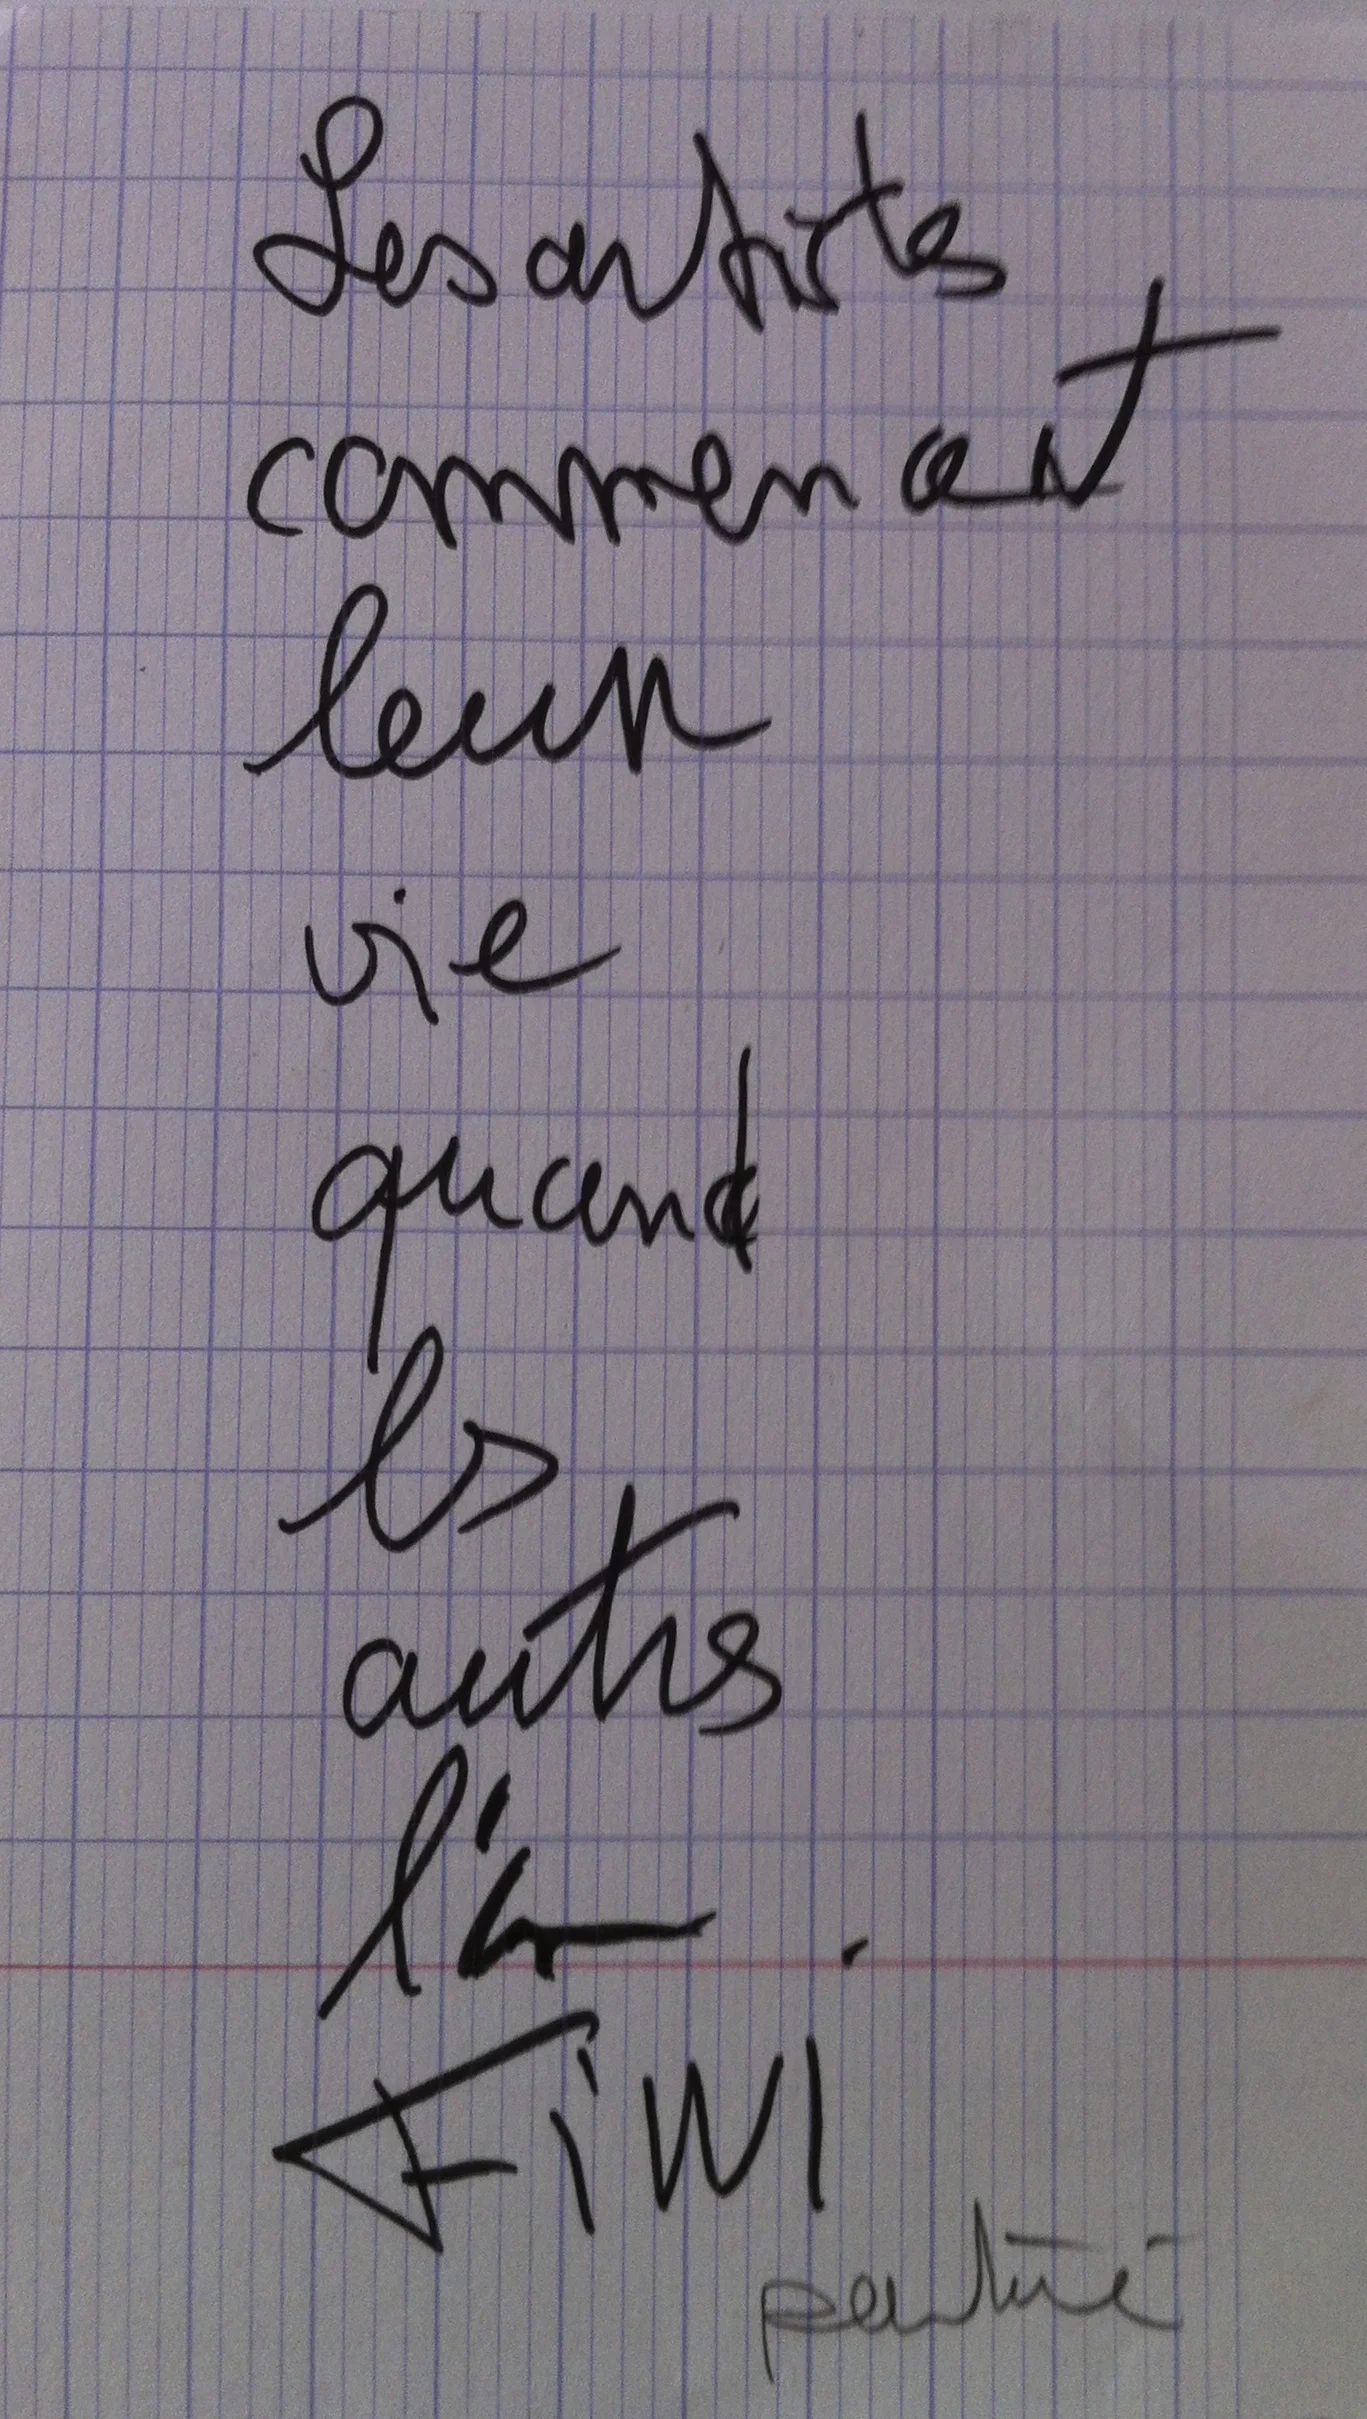 Les artistes
commencent
leur
vie
quand
les
autres
l'on
FiNi